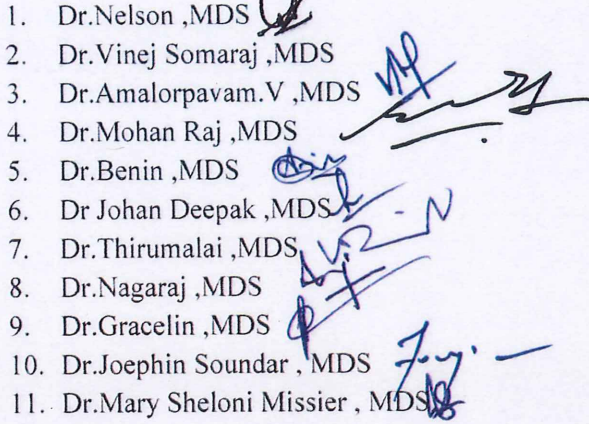 1. Dr.Nelson ,MDS
2. Dr.Vinej Somaraj ,MDS
3. Dr.Amalorpavam.V ,MDS
4. Dr.Mohan Raj ,MDS
5. Dr.Benin ,MDS
6. Dr Johan Deepak ,MDS
7. Dr.Thirumalai ,MDS
8. Dr.Nagaraj ,MDS
9. Dr.Gracelin ,MDS
10. Dr.Joephin Soundar , MDS
11. Dr.Mary Sheloni Missier , MDS